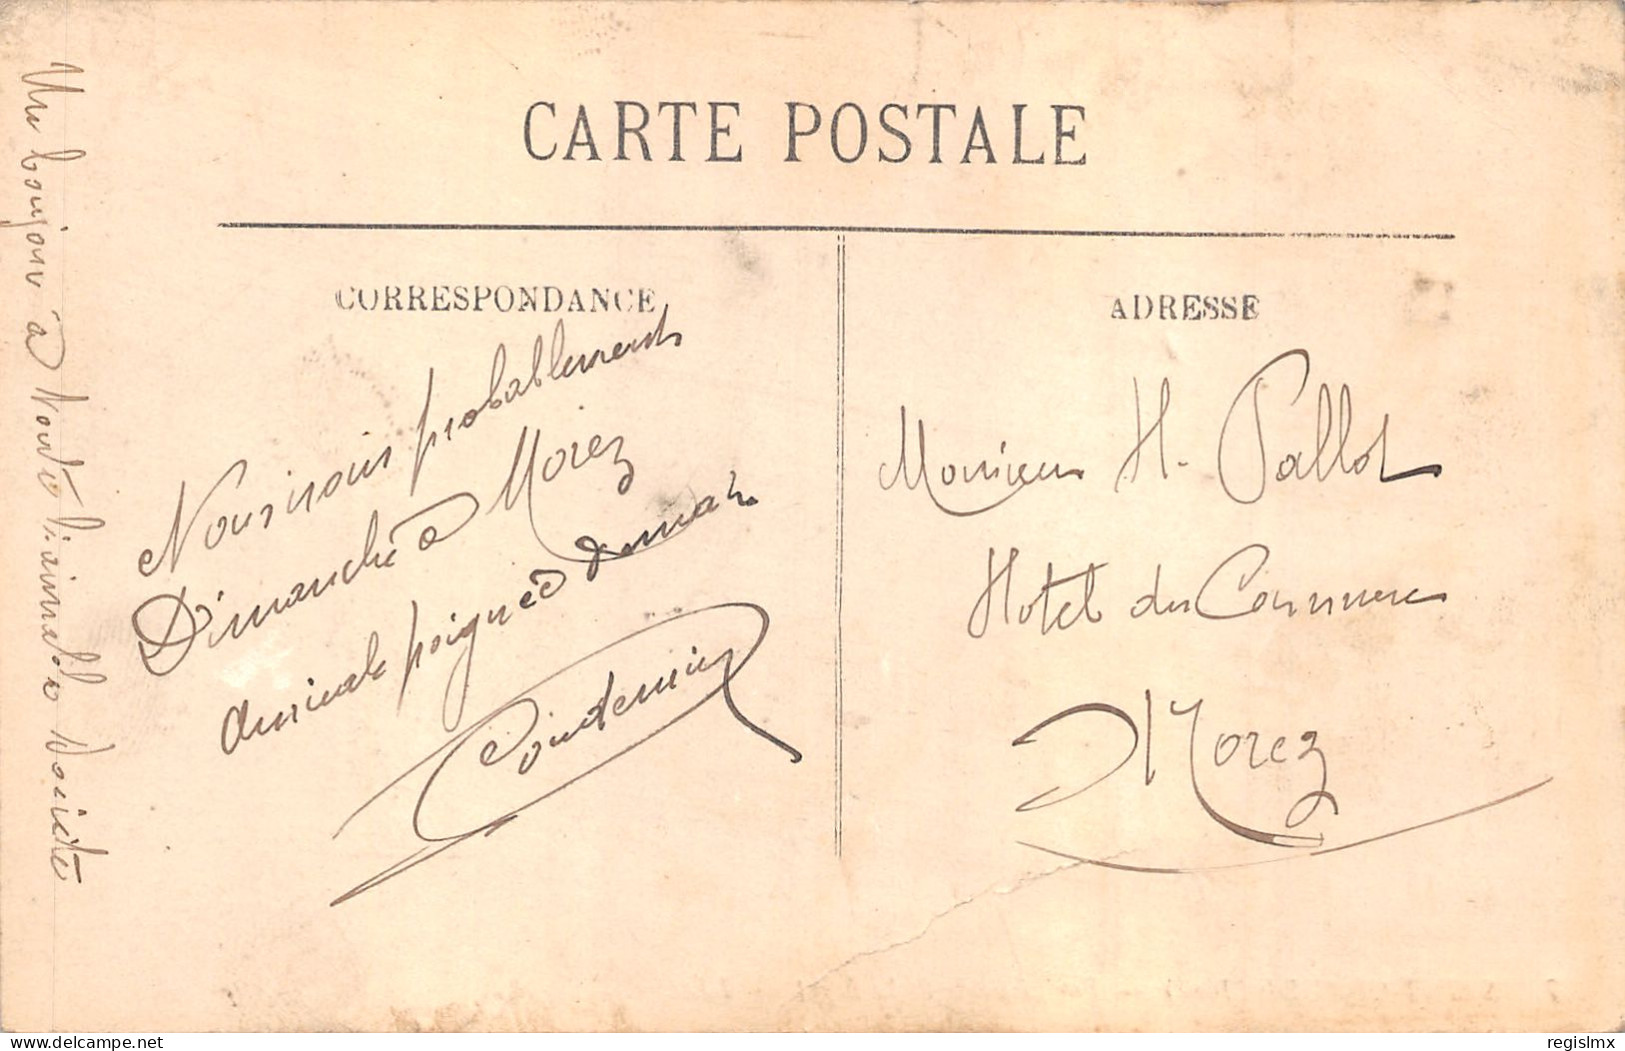 CARTE POSTALE
CORRESPONDANCE
ADRESSE
Nous irons probablement
Dimanche à Morez
Amicale poignée de main
Un bonjour à toute l'aimable société
Monsieur H. Pallot
Hotel du Commerce
Morez
delcampe.net
regislmx